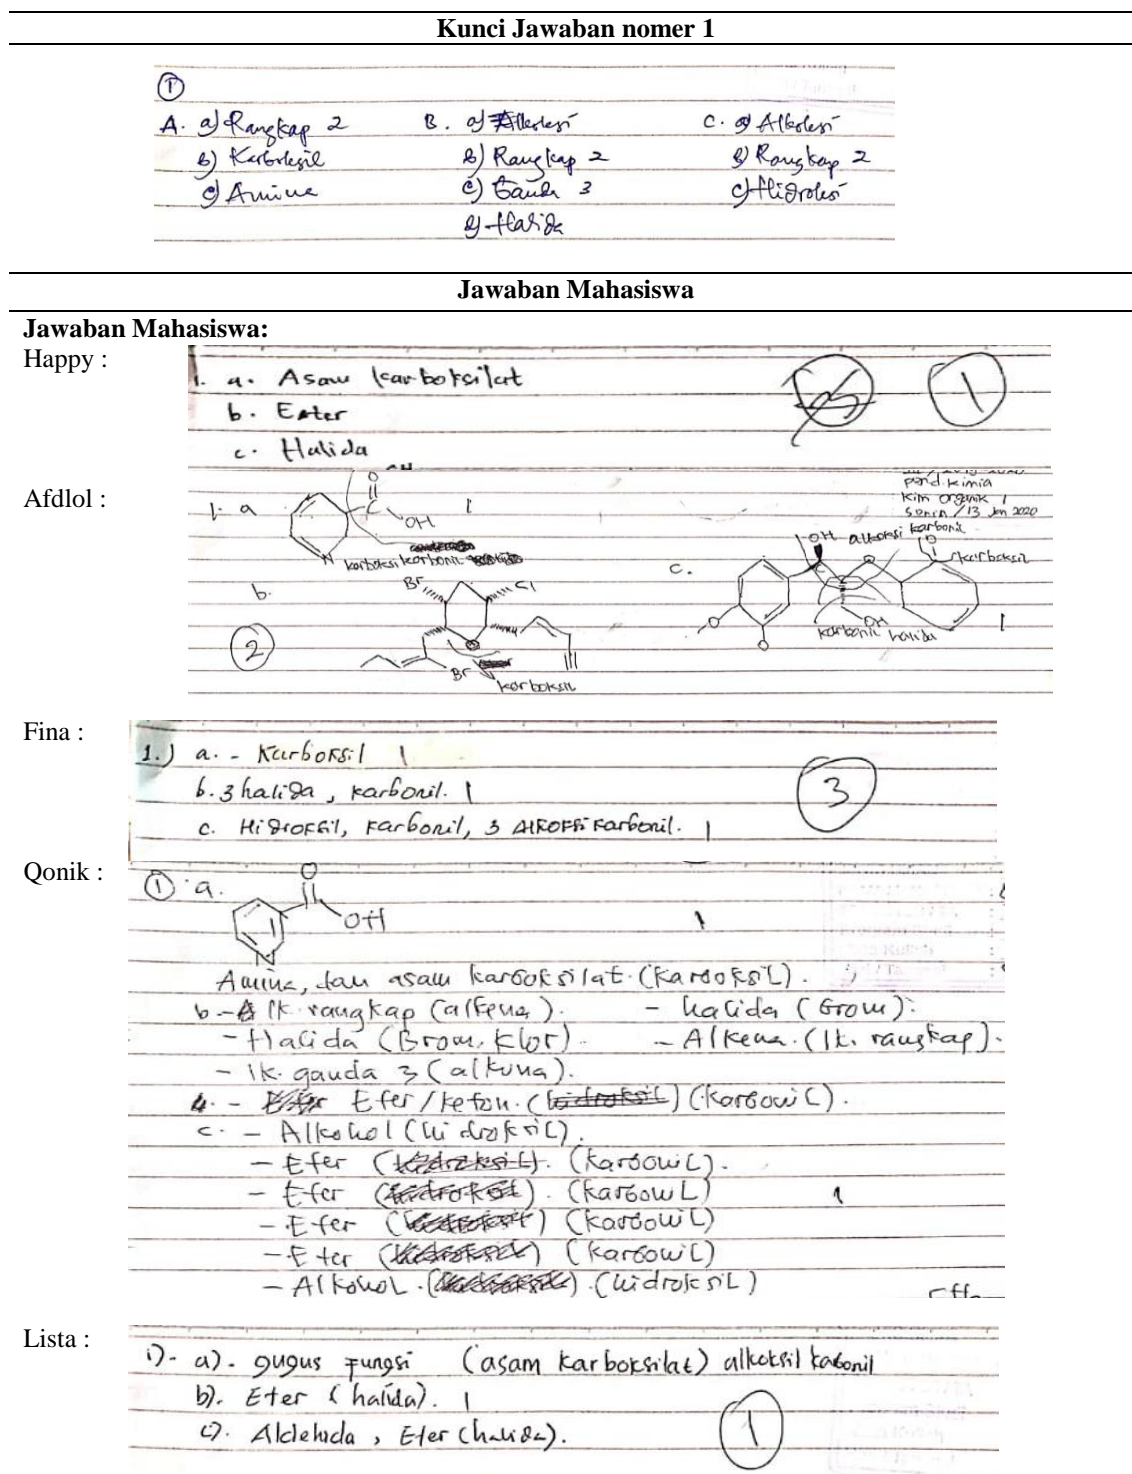 Kunci Jawaban nomer 1
1
A. a) Rangkap 2 B. a) Alkoksi C. a) Alkoksi
b) Karboksil b) Rangkap 2 b) Rangkap 2
c) Amine c) Ganda 3 c) Hidroksi
d) Halida
Jawaban Mahasiswa
Jawaban Mahasiswa:
Happy :
1. a. Asam karboksilat
b. Eter
c. Halida
1
Afdlol :
pend. kimia
Kim Organik 1
Senin / 13 Jan 2020
1. a
O
C
OH
1
N
karboksi karbonil
b.
Br
Cl
O
Br
karboksil
2
c.
OH alkoksi karbonil
O
karboksil
O
O
OH
karbonil halida
1
Fina :
1.) a. - Karboksil 1
b. 3 halida, karbonil. 1
c. Hidroksil, karbonil, 3 Alkoksi karbonil. 1
3
Qonik :
1 a.
O
OH
N
1
Amina, dan asam karboksilat (karboksil).
b - Ik. rangkap (alkena). - halida (Brom).
- Halida (Brom, klor). - Alkena. (Ik. rangkap).
- Ik. ganda 3 (alkuna).
- Eter/keton. (karbonil).
c. - Alkohol (hidroksil).
- Eter (karbonil).
- Eter (karbonil) 1
- Eter (karbonil)
- Eter (karbonil)
- Alkohol. (hidroksil)
Lista :
1). a). gugus fungsi (asam karboksilat) alkoksil kabonil
b). Eter (halida). 1
c). Aldehida, Eter (halida).
1